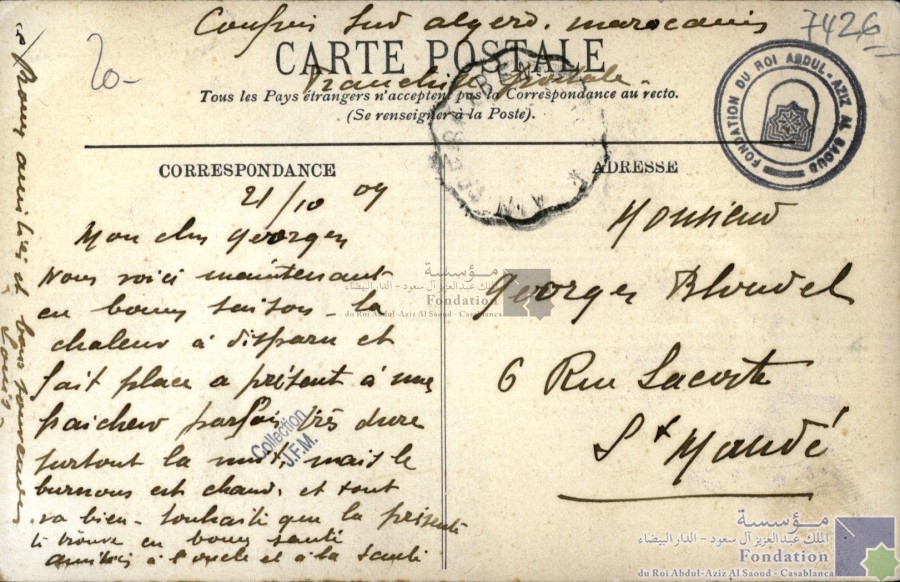 Confins Sud algero-marocains
7426
20-
CARTE POSTALE
Franchise postale.
Tous les Pays étrangers n'acceptent pas la Correspondance au recto.
(Se renseigner à la Poste).
FONDATION DU ROI ABDUL-AZIZ AL SAOUD
CORRESPONDANCE
21/10 09
Mon cher Georges
Nous voici maintenant
en bonne saison - la
chaleur à disparu et
fait place a présent à une
fraicheur parfois très dure
surtout la nuit, mais le
burnous est chaud, et tout
va bien - Souhaite que la présente
te trouve en bonne santé
amitiés à l'oncle et à la
Bonnes amitiés et bons souvenirs
Louis
ADRESSE
Monsieur
Georges Blondel
6 Rue Lacoste
St Mandé
Collection
J.F.M.
مؤسسة
الملك عبد العزيز آل سعود - الدار البيضاء
Fondation
du Roi Abdul-Aziz Al Saoud - Casablanca
مؤسسة
الملك عبد العزيز آل سعود - الدار البيضاء
Fondation
du Roi Abdul-Aziz Al Saoud - Casablanca